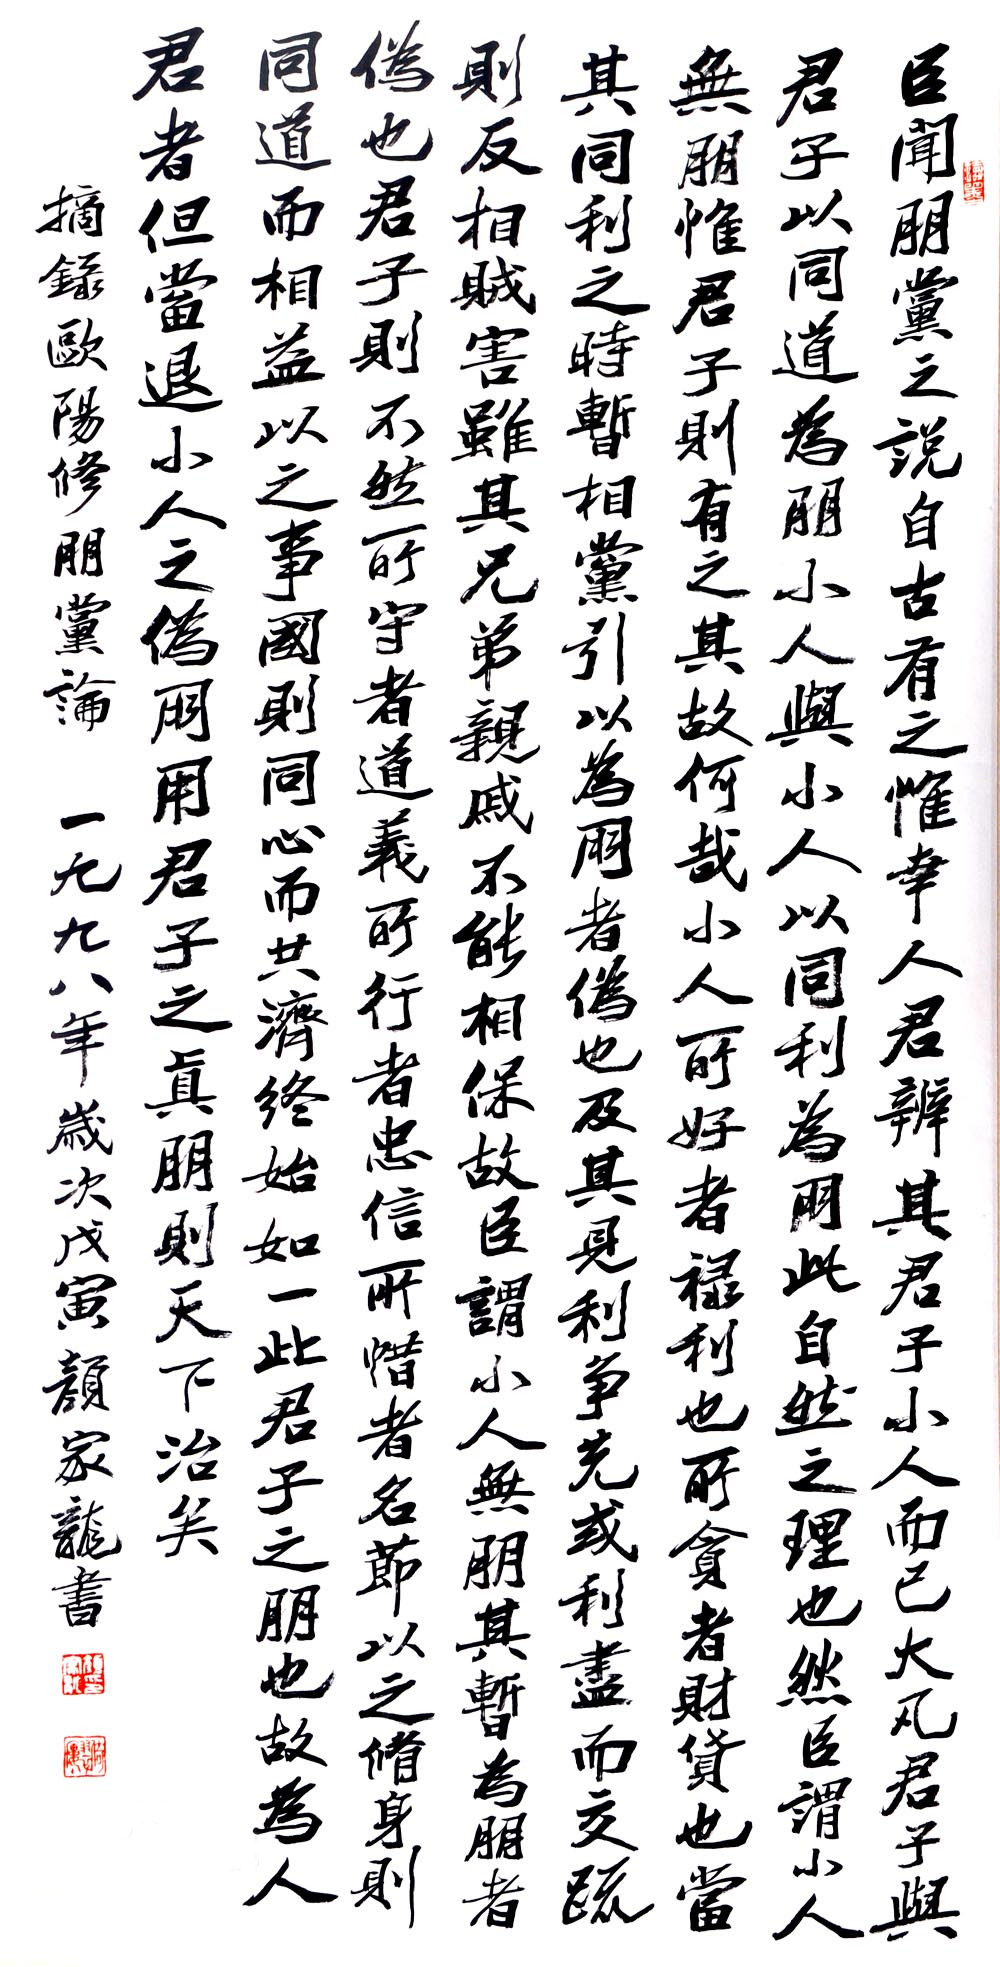 臣聞朋黨之説自古有之惟幸人君辨其君子小人而已大凡君子與
君子以同道為朋小人與小人以同利為朋此自然之理也然臣謂小人
無朋惟君子則有之其故何哉小人所好者禄利也所貪者財貨也當
其同利之時暫相黨引以為朋者偽也及其見利争先或利盡而交疏
則反相賊害雖其兄弟親戚不能相保故臣謂小人無朋其暫為朋者
偽也君子則不然所守者道義所行者忠信所惜者名節以之脩身則
同道而相益以之事國則同心而共濟終始如一此君子之朋也故為人
君者但當退小人之偽朋用君子之真朋則天下治矣
摘録歐陽修朋黨論 一九九八年歲次戊寅顔家龍書